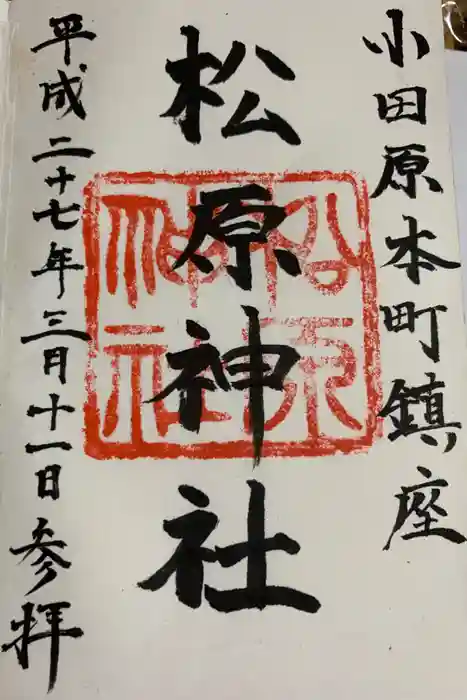 小田原本町鎮座
松原神社
平成二十七年三月十一日参拝
松原
神社